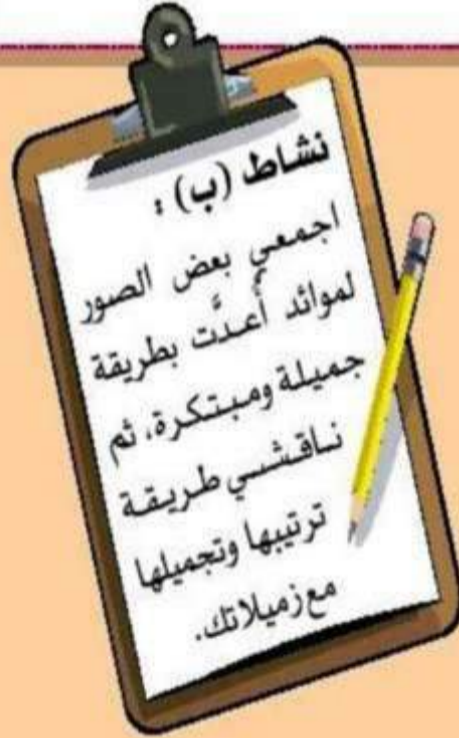 نشاط (ب) :
اجمعي بعض الصور
لموائد أُعدَّت بطريقة
جميلة ومبتكرة، ثم
ناقشي طريقة
ترتيبها وتجميلها
مع زميلاتك.